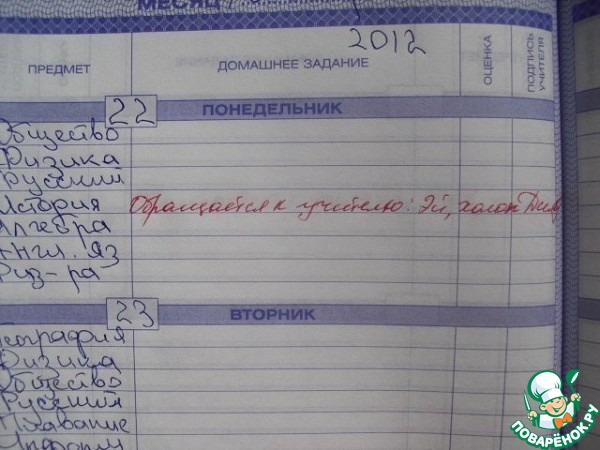 МЕСЯЦ
2012
ПРЕДМЕТ
ДОМАШНЕЕ ЗАДАНИЕ
ОЦЕНКА
ПОДПИСЬ УЧИТЕЛЯ
22 ПОНЕДЕЛЬНИК
Общество
Физика
Русский
История Обращается к учителю: Эй, холоп
Алгебра
Англ. яз
Физ-ра
23 ВТОРНИК
География
Физика
Общество
Русский
Плавание
Информ
ПОВАРЁНОК.РУ